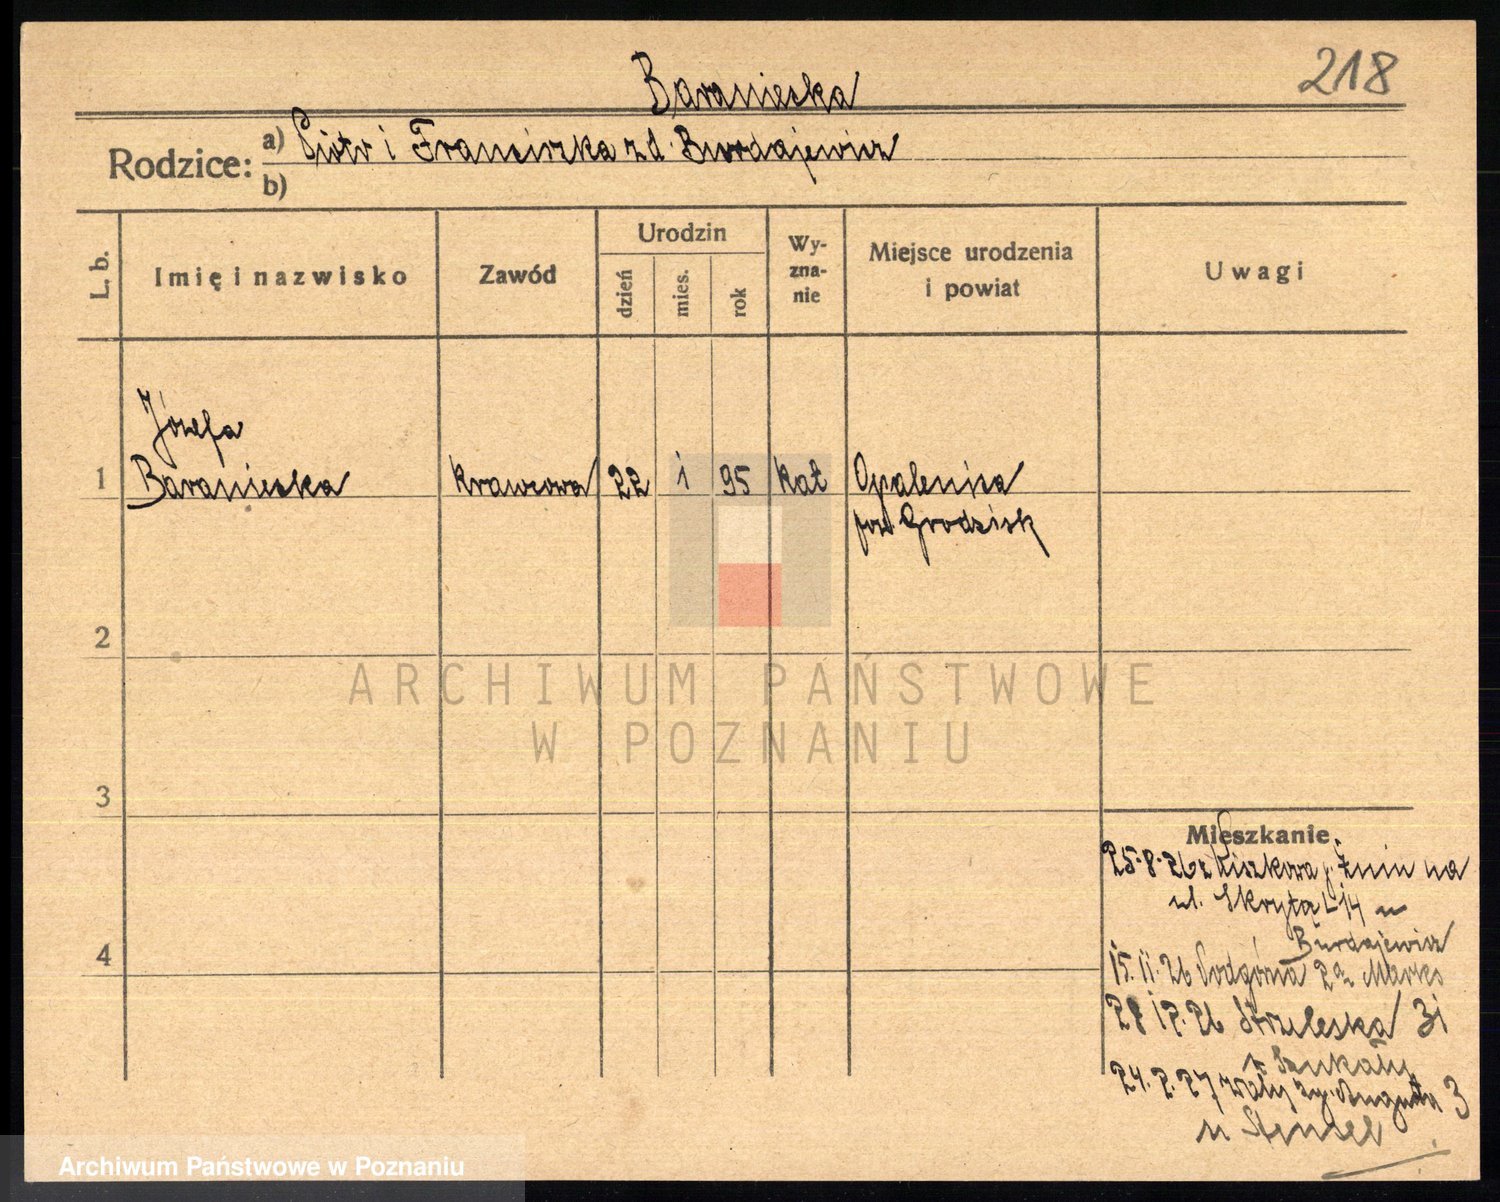 218
Baraniecka
Rodzice: a) Piotr i Franciszka z d. Burdajewicz
b)
L. b. Imię i nazwisko Zawód Urodzin dzień mies. rok Wyzna-nie Miejsce urodzenia i powiat Uwagi
Józefa
1 Baraniecka krawcowa 22 1 95 kat Opalenica
pow Grodzisk
2
ARCHIWUM PAŃSTWOWE
W POZNANIU
3
Mieszkanie.
25.8.26 z Kiszkowa p. Żnin na
ul. Skryta 14 u
4 Burdajewicz
15.11.26 Podgórna
28 12.26 Strzelecka 31
24.2.27 Wały Zyg. Augusta 3
u Stensel
Archiwum Państwowe w Poznaniu